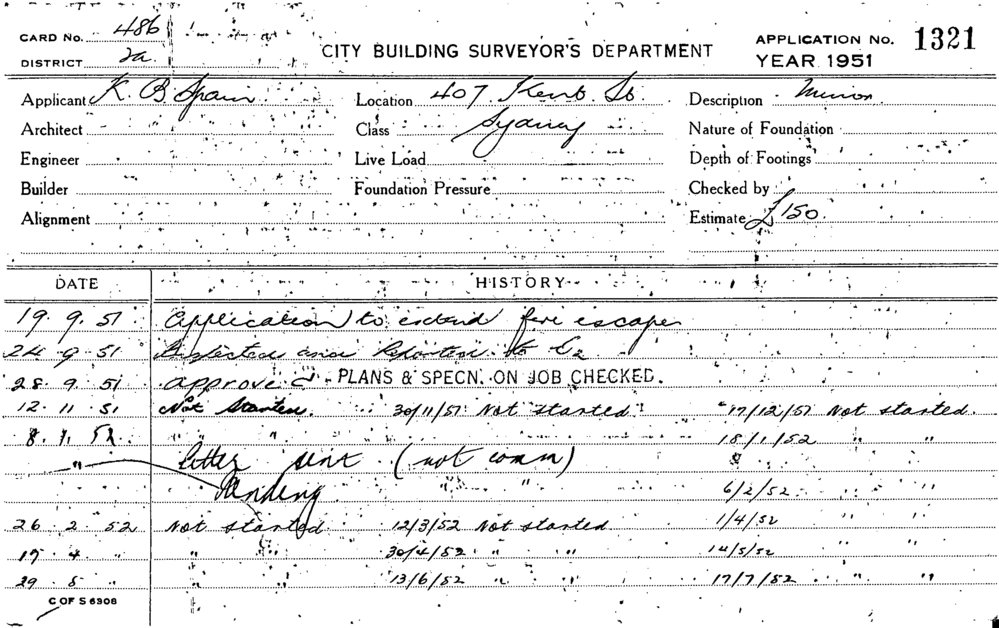 CARD No. 486
DISTRICT 2a.
CITY BUILDING SURVEYOR'S DEPARTMENT
APPLICATION No. 1321
YEAR 1951
Applicant K. B Spain Location 407 Kent St. Description Minor
Architect Class Sydney Nature of Foundation
Engineer Live Load Depth of Footings
Builder Foundation Pressure Checked by
Alignment Estimate £150.
DATE HISTORY
19. 9. 51 Application to extend fire escape
24. 9. 51 Inspected and Reported to
28. 9. 51 approved PLANS & SPECN. ON JOB CHECKED.
12. 11. 51 Not Started. 30/11/51 Not started. 17/12/51 Not started.
8. 1. 52. " " " 18/1/52 " "
" letter sent (not comm)
Pending " " 6/2/52. " "
26. 2. 52 Not started 12/3/52 Not started 1/4/52 " "
17. 4. " " " 30/4/52 " " 14/5/52
29. 5 " " " 13/6/52 " " 17/7/52 " "
C OF S 6308